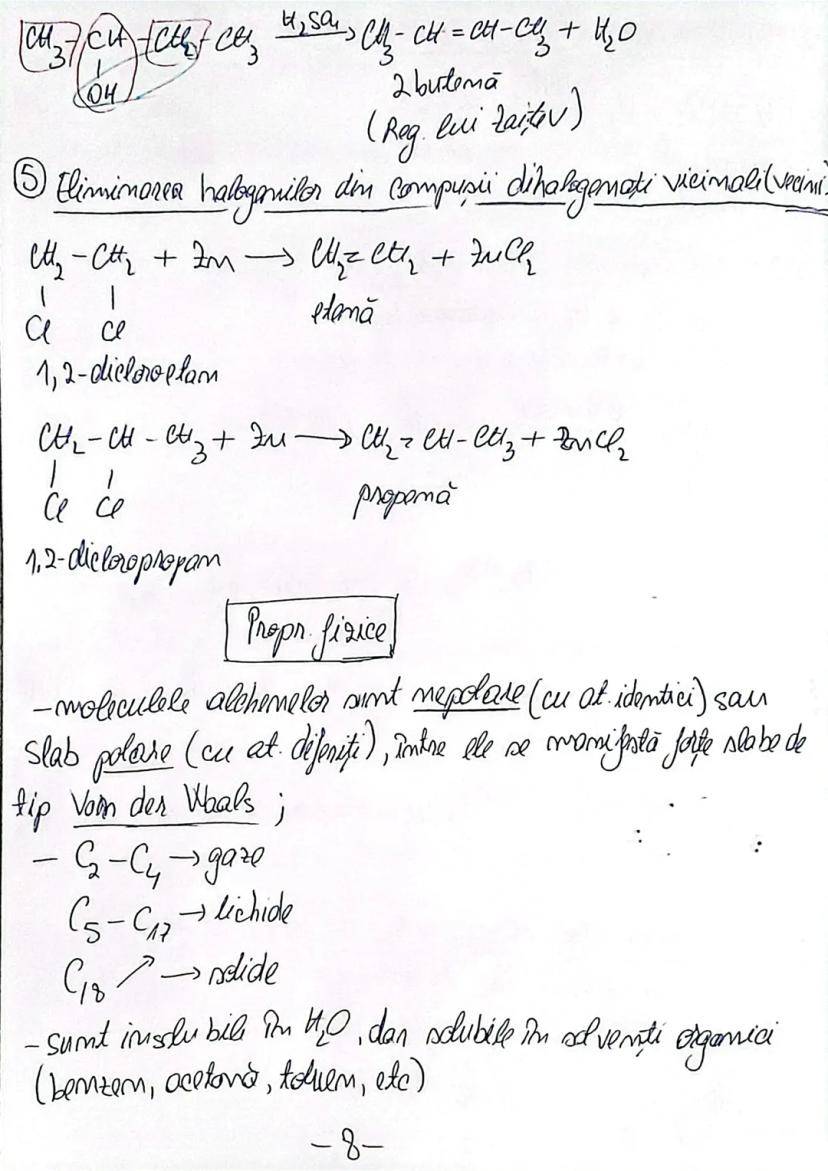 CH₃-CH-CH₂-CH₃ H₂SO₄→ CH₃-CH=CH-CH₃ + H₂O
OH
2 butenă
(Reg. lui Zaițev)
⑤ Eliminarea halogenilor din compușii dihalogenați vicinali (vecini)
CH₂-CH₂ + Zn → CH₂=CH₂ + ZnCl₂
Cl Cl etenă
1,2-dicloroetan
CH₂-CH-CH₃ + Zn → CH₂=CH-CH₃ + ZnCl₂
Cl Cl propenă
1,2-dicloropropan
Propr. fizice
-moleculele alchenelor sunt nepolare (cu at. identici) sau
slab polare (cu at. diferiți), între ele se manifestă forțe slabe de
tip Van der Waals ;
- C₂-C₄ → gaze
C₅-C₁₇ → lichide
C₁₈ ↗ → solide
-sunt insolubile în H₂O, dar solubile în solvenți organici
(benzen, acetonă, toluen, etc)
-8-